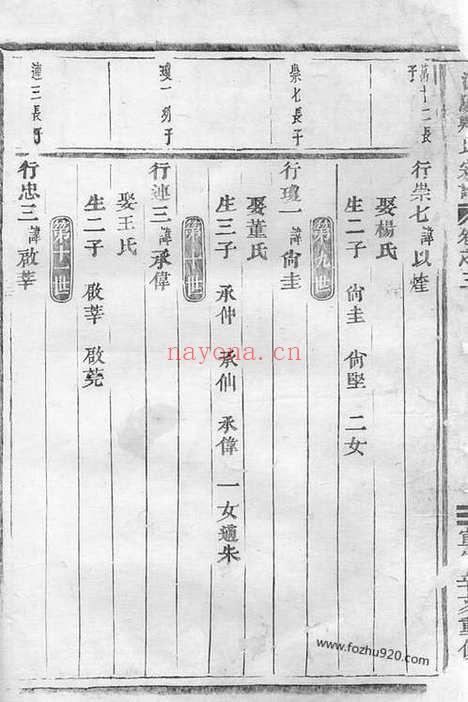 萬十二長子
行崇七諱以煃
娶楊氏
生二子 尙圭 尙堅 二女
第九世
崇七長子
行瓊一諱尙圭
娶董氏
生三子 承仲 承仙 承偉 一女適朱
第十世
瓊一幼子
行連三諱承偉
娶王氏
生二子 啟莘 啟莞
第十一世
連三長子
行忠三諱啟莘
nayona.cn
www.fozhu920.com